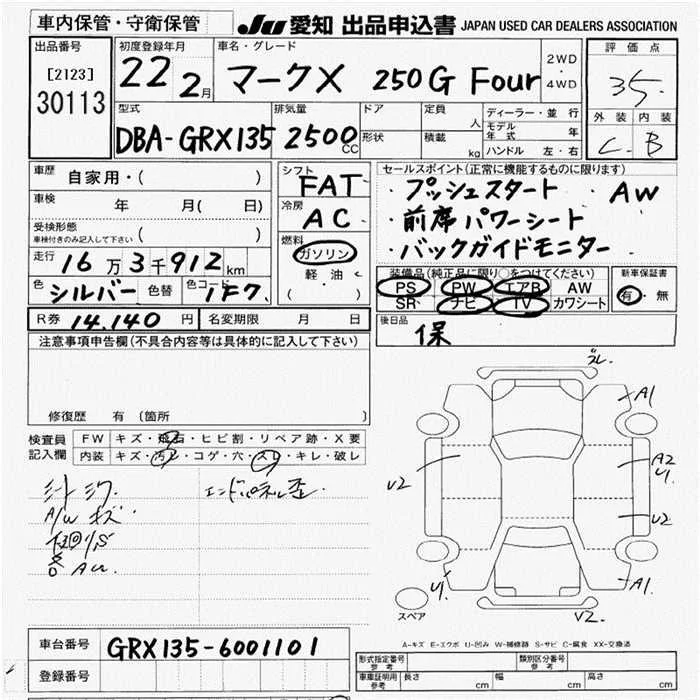 車内保管・守衛保管
JU 愛知 出品申込書 JAPAN USED CAR DEALERS ASSOCIATION
出品番号
[2123]
30113
初度登録年月
22 2月
車名・グレード
マークX 250G Four
2WD
・
4WD
評価点
35
外装 内装
C B
型式
DBA-GRX135
排気量
2500 CC
ドア
形状
定員
人
積載
kg
ディーラー・並行
モデル年式
年
ハンドル 左・右
車歴
自家用・( )
車検
年 月( 日)
受検形態
車検付きのみ記入して下さい ( )
走行
16万3千912km
色 シルバー 色替 色コード 1F7
シフト
FAT
冷房
AC
燃料
ガソリン
軽・油
( )
セールスポイント(正常に機能するものに限ります)
・プッシュスタート ・AW
・前席パワーシート
・バックガイドモニター
装備品(純正品に限り○をつけてください)
PS PW エアB AW
SR ナビ TV カワシート
新車保証書
有・無
R券 14.140 円 名変期限 月 日
後日品
保
注意事項申告欄(不具合内容等は具体的に記入して下さい)
修復歴 有 (箇所
検査員
記入欄
FW キズ・飛石・ヒビ割・リペア跡・X要
内装 キズ・汚レ・コゲ・穴・スレ・キレ・破レ
A/W キズ
エンドパネル歪
ズレ
A1
A2
U1
U2
U2
U1
A1
V2
スペア
A-キズ E-エクボ U-凹み W-補修跡 S-サビ C-腐食 XX-交換済
車台番号 GRX135-6001101
登録番号
形式指定番号
参考
類別区分番号
参考
車庫証明用
参考
長さ cm 幅 cm 高さ cm